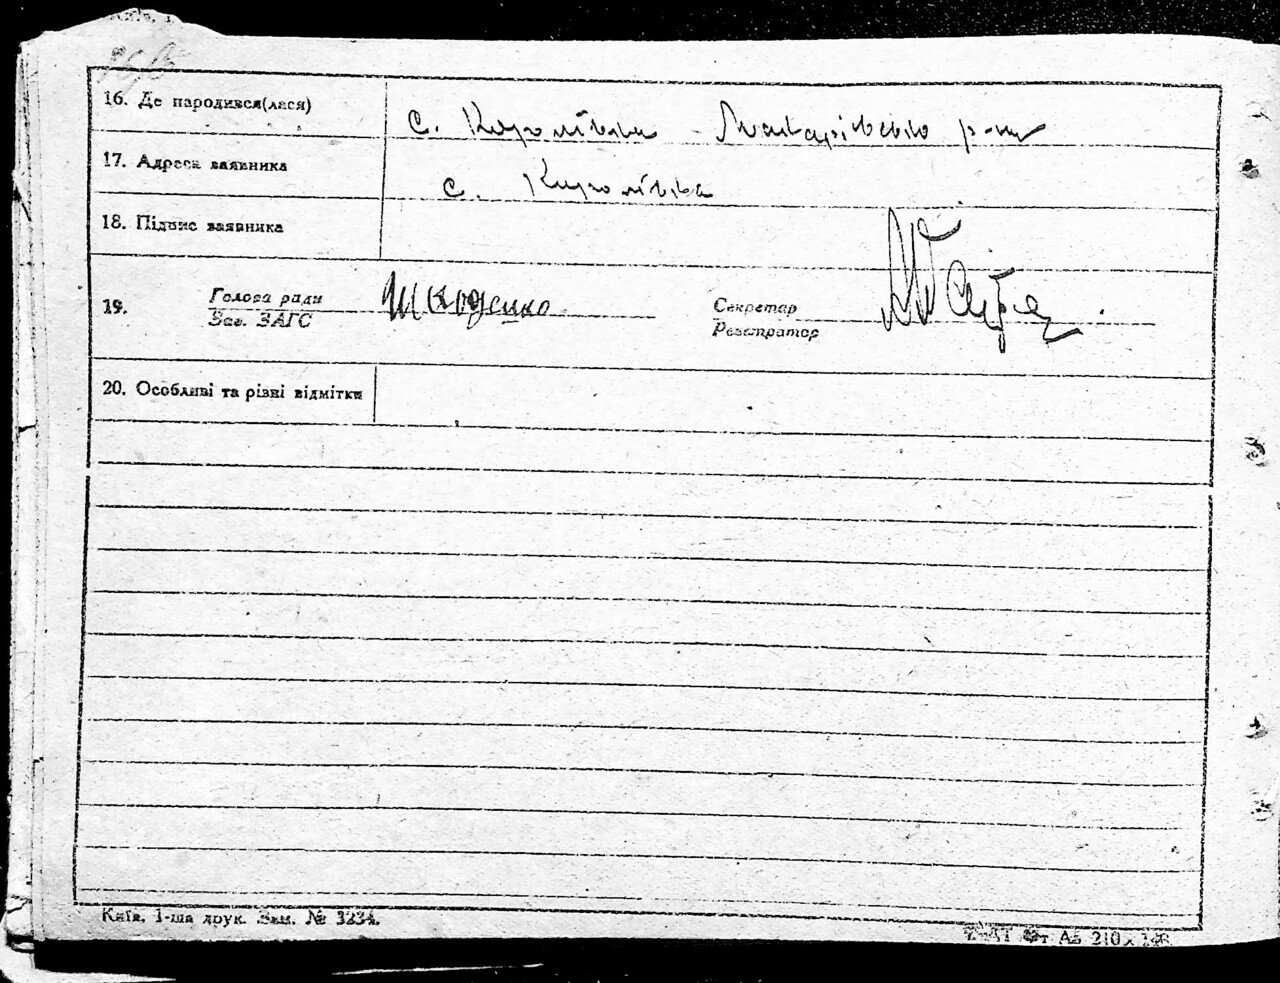 16. Де народився(лася)
с. Королівка Макарівсько р-ну
17. Адреса заявника
с. Королівка
18. Підпис заявника
19. Голова ради Шкоденко
Зав. ЗАГС
Секретар
Реєстратор
20. Особливі та різні відмітки
Київ. 1-ша друк. Зам. № 3234.
210 x 148